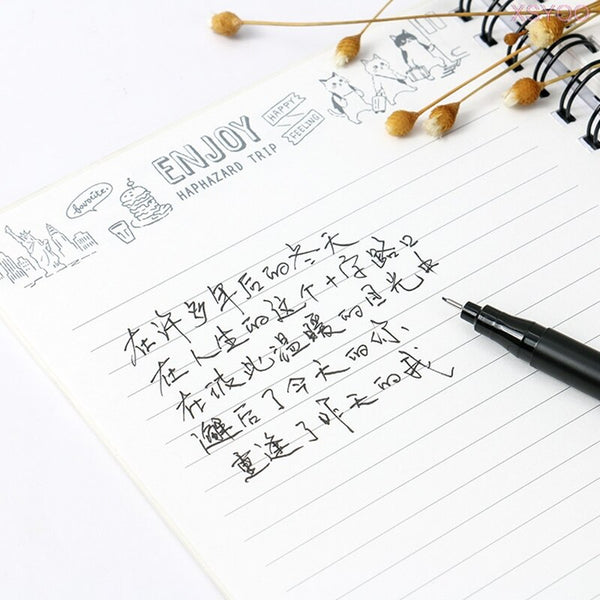 favorite.
ENJOY
HAPHAZARD TRIP
HAPPY
FEELING
在许多年后的冬天
在人生的这个十字路口
在彼此温暖的目光中
解后了今天的你
重逢了昨天的我